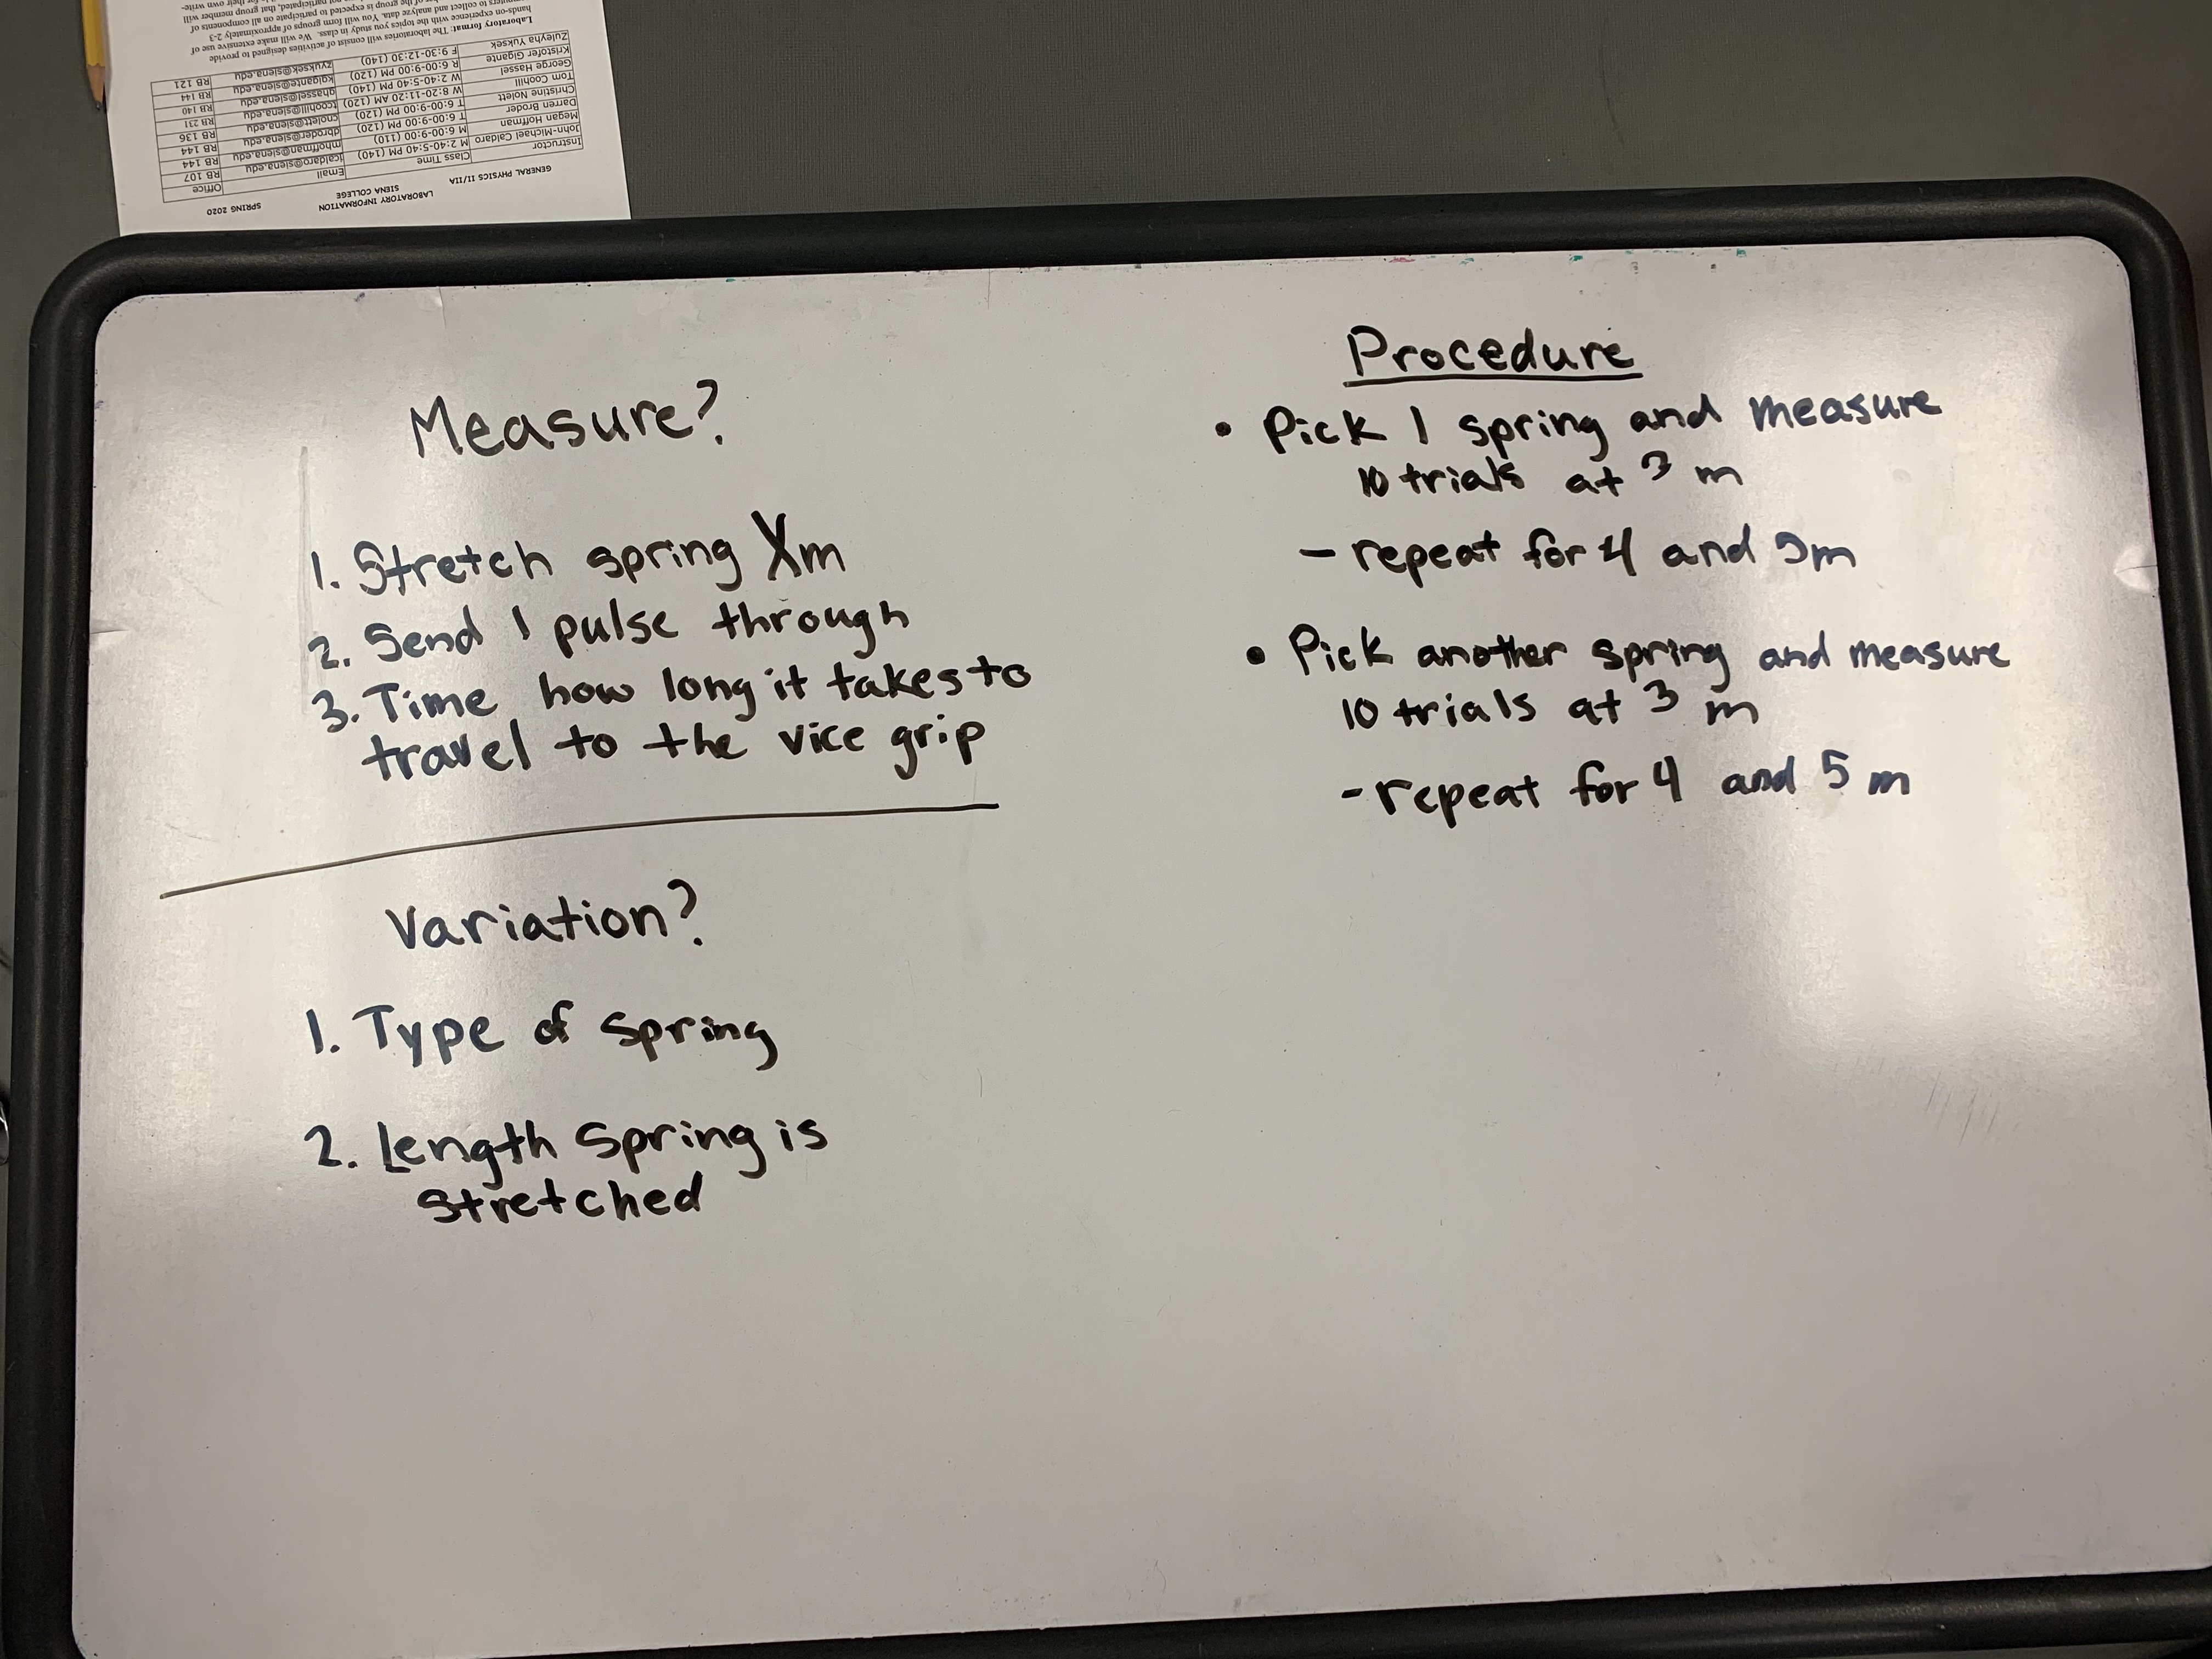 Measure?
1. Stretch spring Xm
2. Send 1 pulse through
3. Time how long it takes to
travel to the vice grip
Variation?
1. Type of Spring
2. Length Spring is
stretched
Procedure
• Pick 1 spring and measure
10 trials at 3 m
- repeat for 4 and 5m
• Pick another spring and measure
10 trials at 3 m
- repeat for 4 and 5 m
GENERAL PHYSICS II/IIA LABORATORY INFORMATION SPRING 2020
SIENA COLLEGE
Instructor Class Time Email Office
John-Michael Caldaro M 2:40-5:40 PM (140) jcaldaro@siena.edu RB 107
Megan Hoffman M 6:00-9:00 (110) mhoffman@siena.edu RB 144
Darren Broder T 6:00-9:00 PM (120) dbroder@siena.edu RB 144
Christine Nolett T 6:00-9:00 PM (120) cnolett@siena.edu RB 136
Tom Coohill W 8:20-11:20 AM (120) tcoohill@siena.edu RB 231
George Hassel W 2:40-5:40 PM (140) ghassel@siena.edu RB 140
Kristofer Gigante R 6:00-9:00 PM (120) kgigante@siena.edu RB 144
Zuleyha Yuksek F 9:30-12:30 (140) zyuksek@siena.edu RB 121
Laboratory format: The laboratories will consist of activities designed to provide
hands-on experience with the topics you study in class. We will make extensive use of
computers to collect and analyze data. You will form groups of approximately 2-3
of the group is expected to participate on all components of
not participated, that group member will
for their own write-